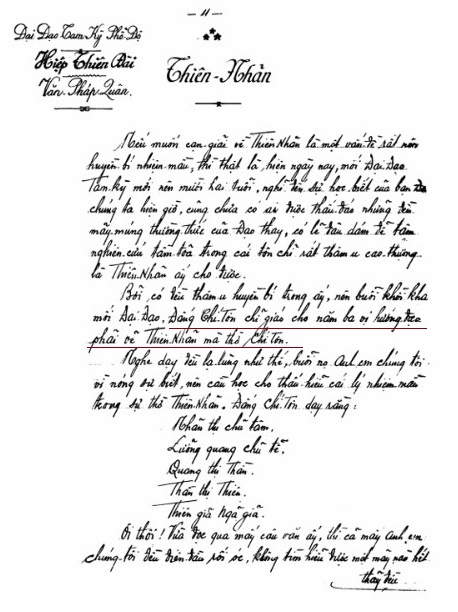 — 11 —
Đại Đạo Tam Kỳ Phổ Độ
Hiệp Thiên Đài
Văn Pháp Quân.
Thiên-Nhãn
Nếu muốn cạn giải về Thiên Nhãn là một vấn đề rất nên
huyền bí nhiệm mầu, thì thật là hiện ngày nay, mối Đại Đạo
Tam Kỳ mới nên mười hai tuổi, nghĩ đến sự học biết của bạn
chúng ta hiện giờ, cũng chưa có ai được thấu đáo những đều
mảy múng thường thức của Đạo thay, có lẽ đâu dám để tâm
nghiên cứu tầm tòa trong cái tôn chỉ rất thâm u cao thượng
là Thiên Nhãn ấy cho được.
Bởi, có đều thâm u huyền bí trong ấy, nên buổi khởi khai
mối Đại Đạo, Đấng Chí Tôn chỉ giáo cho năm ba vị hướng đạo
phải vẽ Thiên Nhãn mà thờ Chí Tôn.
Nghe dạy đều lạ lùng như thế, buổn nọ Anh em chúng tôi
vì nóng sự biết, nên cầu học cho thấu hiểu cái lý nhiệm mầu
trong sự thờ Thiên Nhãn. Đấng Chí Tôn dạy rằng:
Nhãn thị chủ tâm,
Lưỡng quang chủ tể,
Quang thị Thần,
Thần thị Thiên,
Thiên giả Ngã giả.
Ôi thôi! Vừa đọc qua mấy câu văn ấy, thì cả mấy Anh em
chúng tôi đều điên đầu rối óc, không trọn hiểu được một mảy nào hết
thảy đều